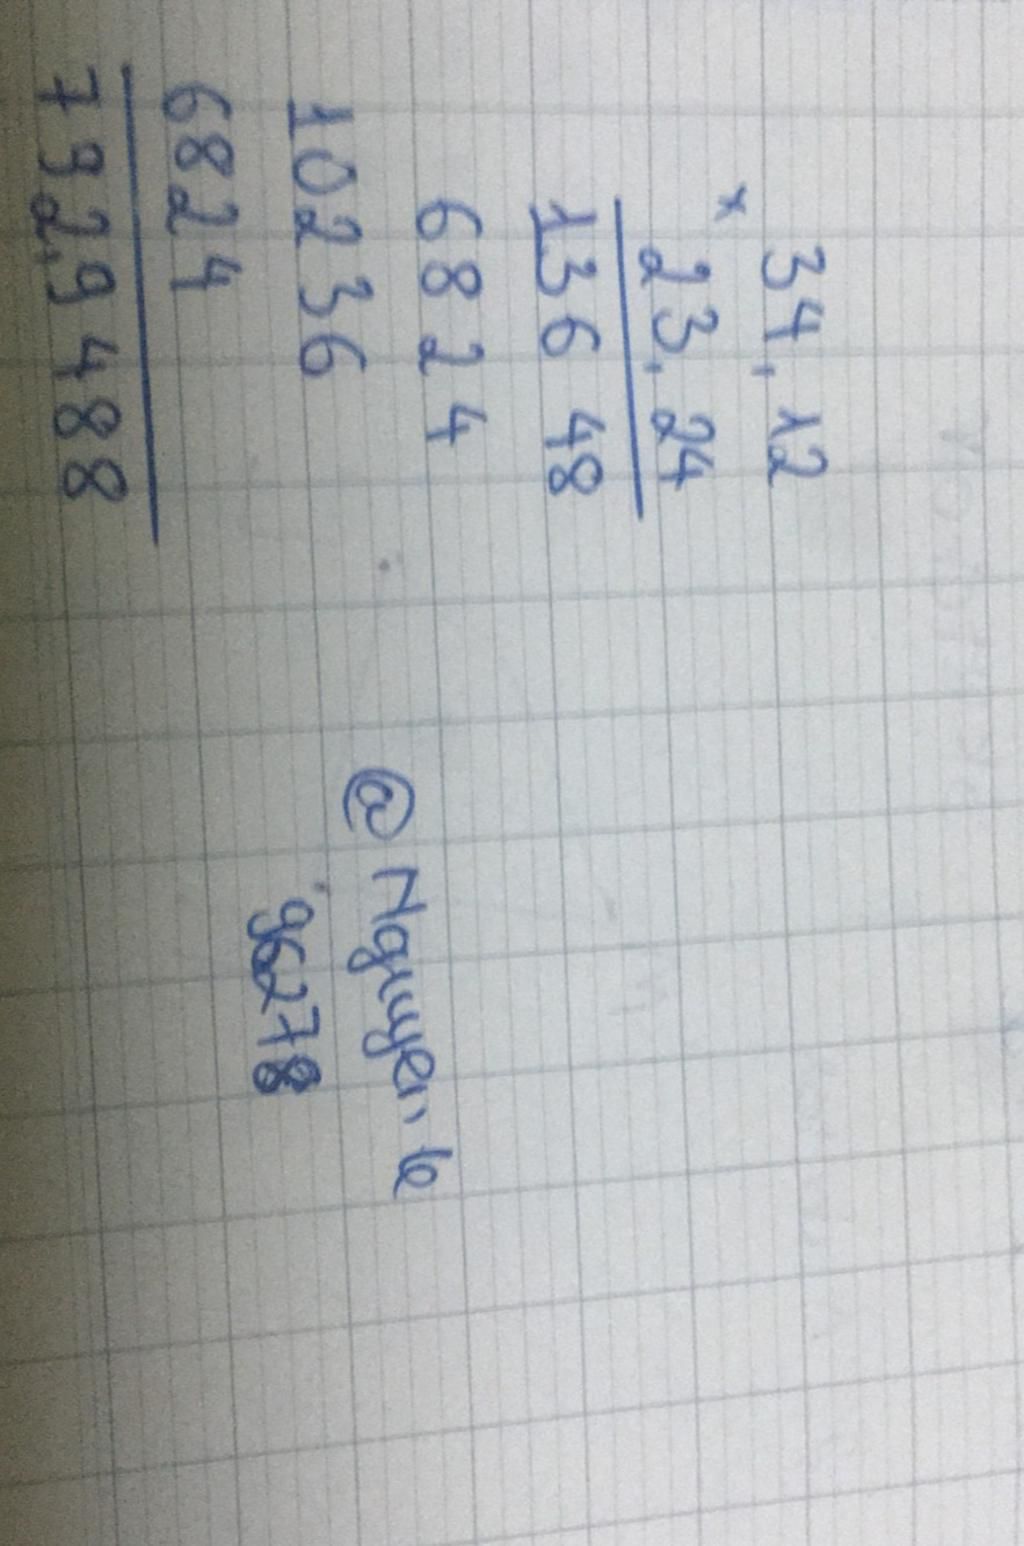 34,12
x
23,24
13648
6824
10236
6824
732,9488
@Nguyen, le
96278